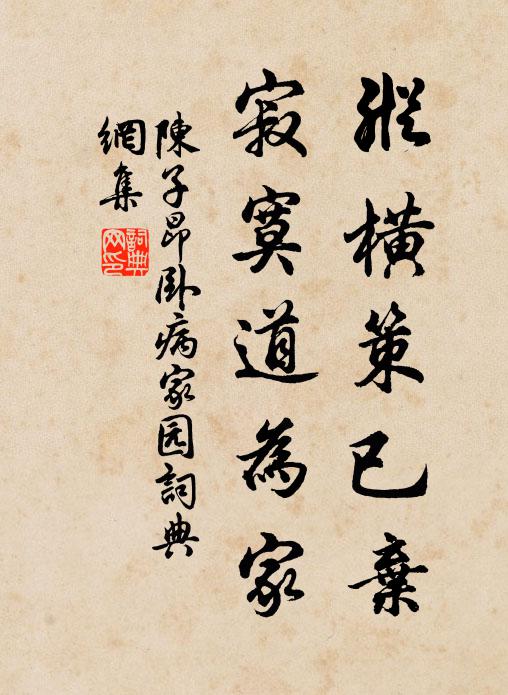 縱橫策已棄
寂寞道為家
陳子昂臥病家园詞典
網集
詞典
网印